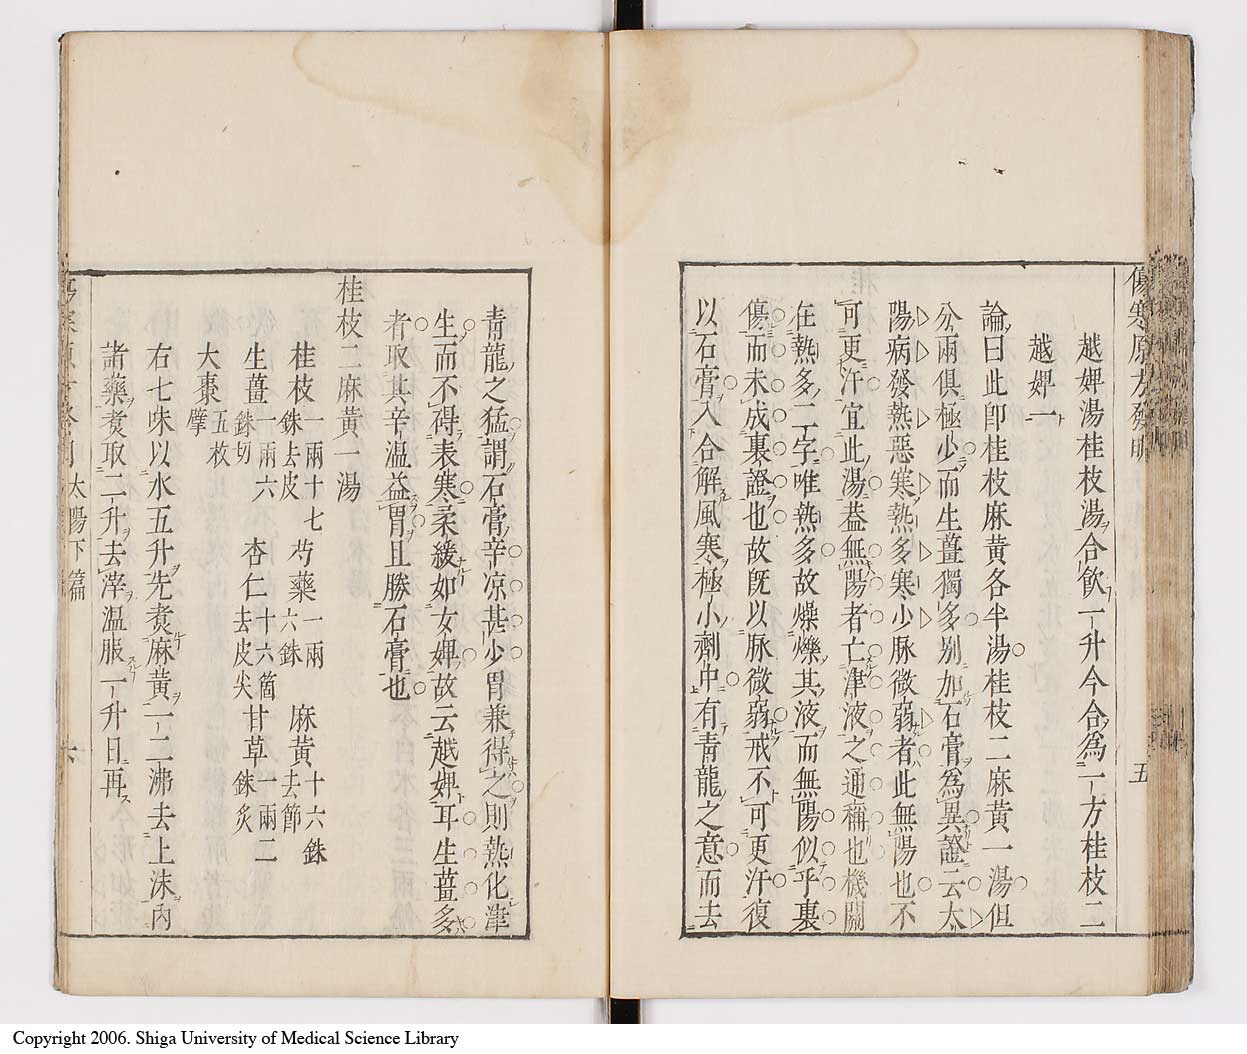 傷寒原方發明
五
越婢湯桂枝湯合飲一升今合為一方桂枝二
越婢一
論曰此卽桂枝麻黃各半湯桂枝二麻黃一湯但
分兩俱極少而生薑獨多別加石膏為異證云太
陽病發熱惡寒熱多寒少脉微弱者此無陽也不
可更汗宜此湯葢無陽者亡津液之通稱也機關
在熱多二字唯熱多故燥爍其液而無陽似乎裏
傷而未成裏證也故旣以脉微弱戒不可更汗復
以石膏入合解風寒極小劑中有青龍之意而去
青龍之猛謂石膏辛凉甚少胃兼得之則熱化津
生而不得表寒柔緩如女婢故云越婢耳生薑多
者取其辛溫益胃且勝石膏也
桂枝二麻黃一湯
桂枝一兩十七銖去皮 芍藥一兩六銖 麻黃十六銖去節
生薑一兩六銖切 杏仁十六箇去皮尖 甘草一兩二銖炙
大棗五枚擘
右七味以水五升先煑麻黃一二沸去上沫內
諸藥煑取二升去滓溫服一升日再
太陽下篇
六
Copyright 2006. Shiga University of Medical Science Library